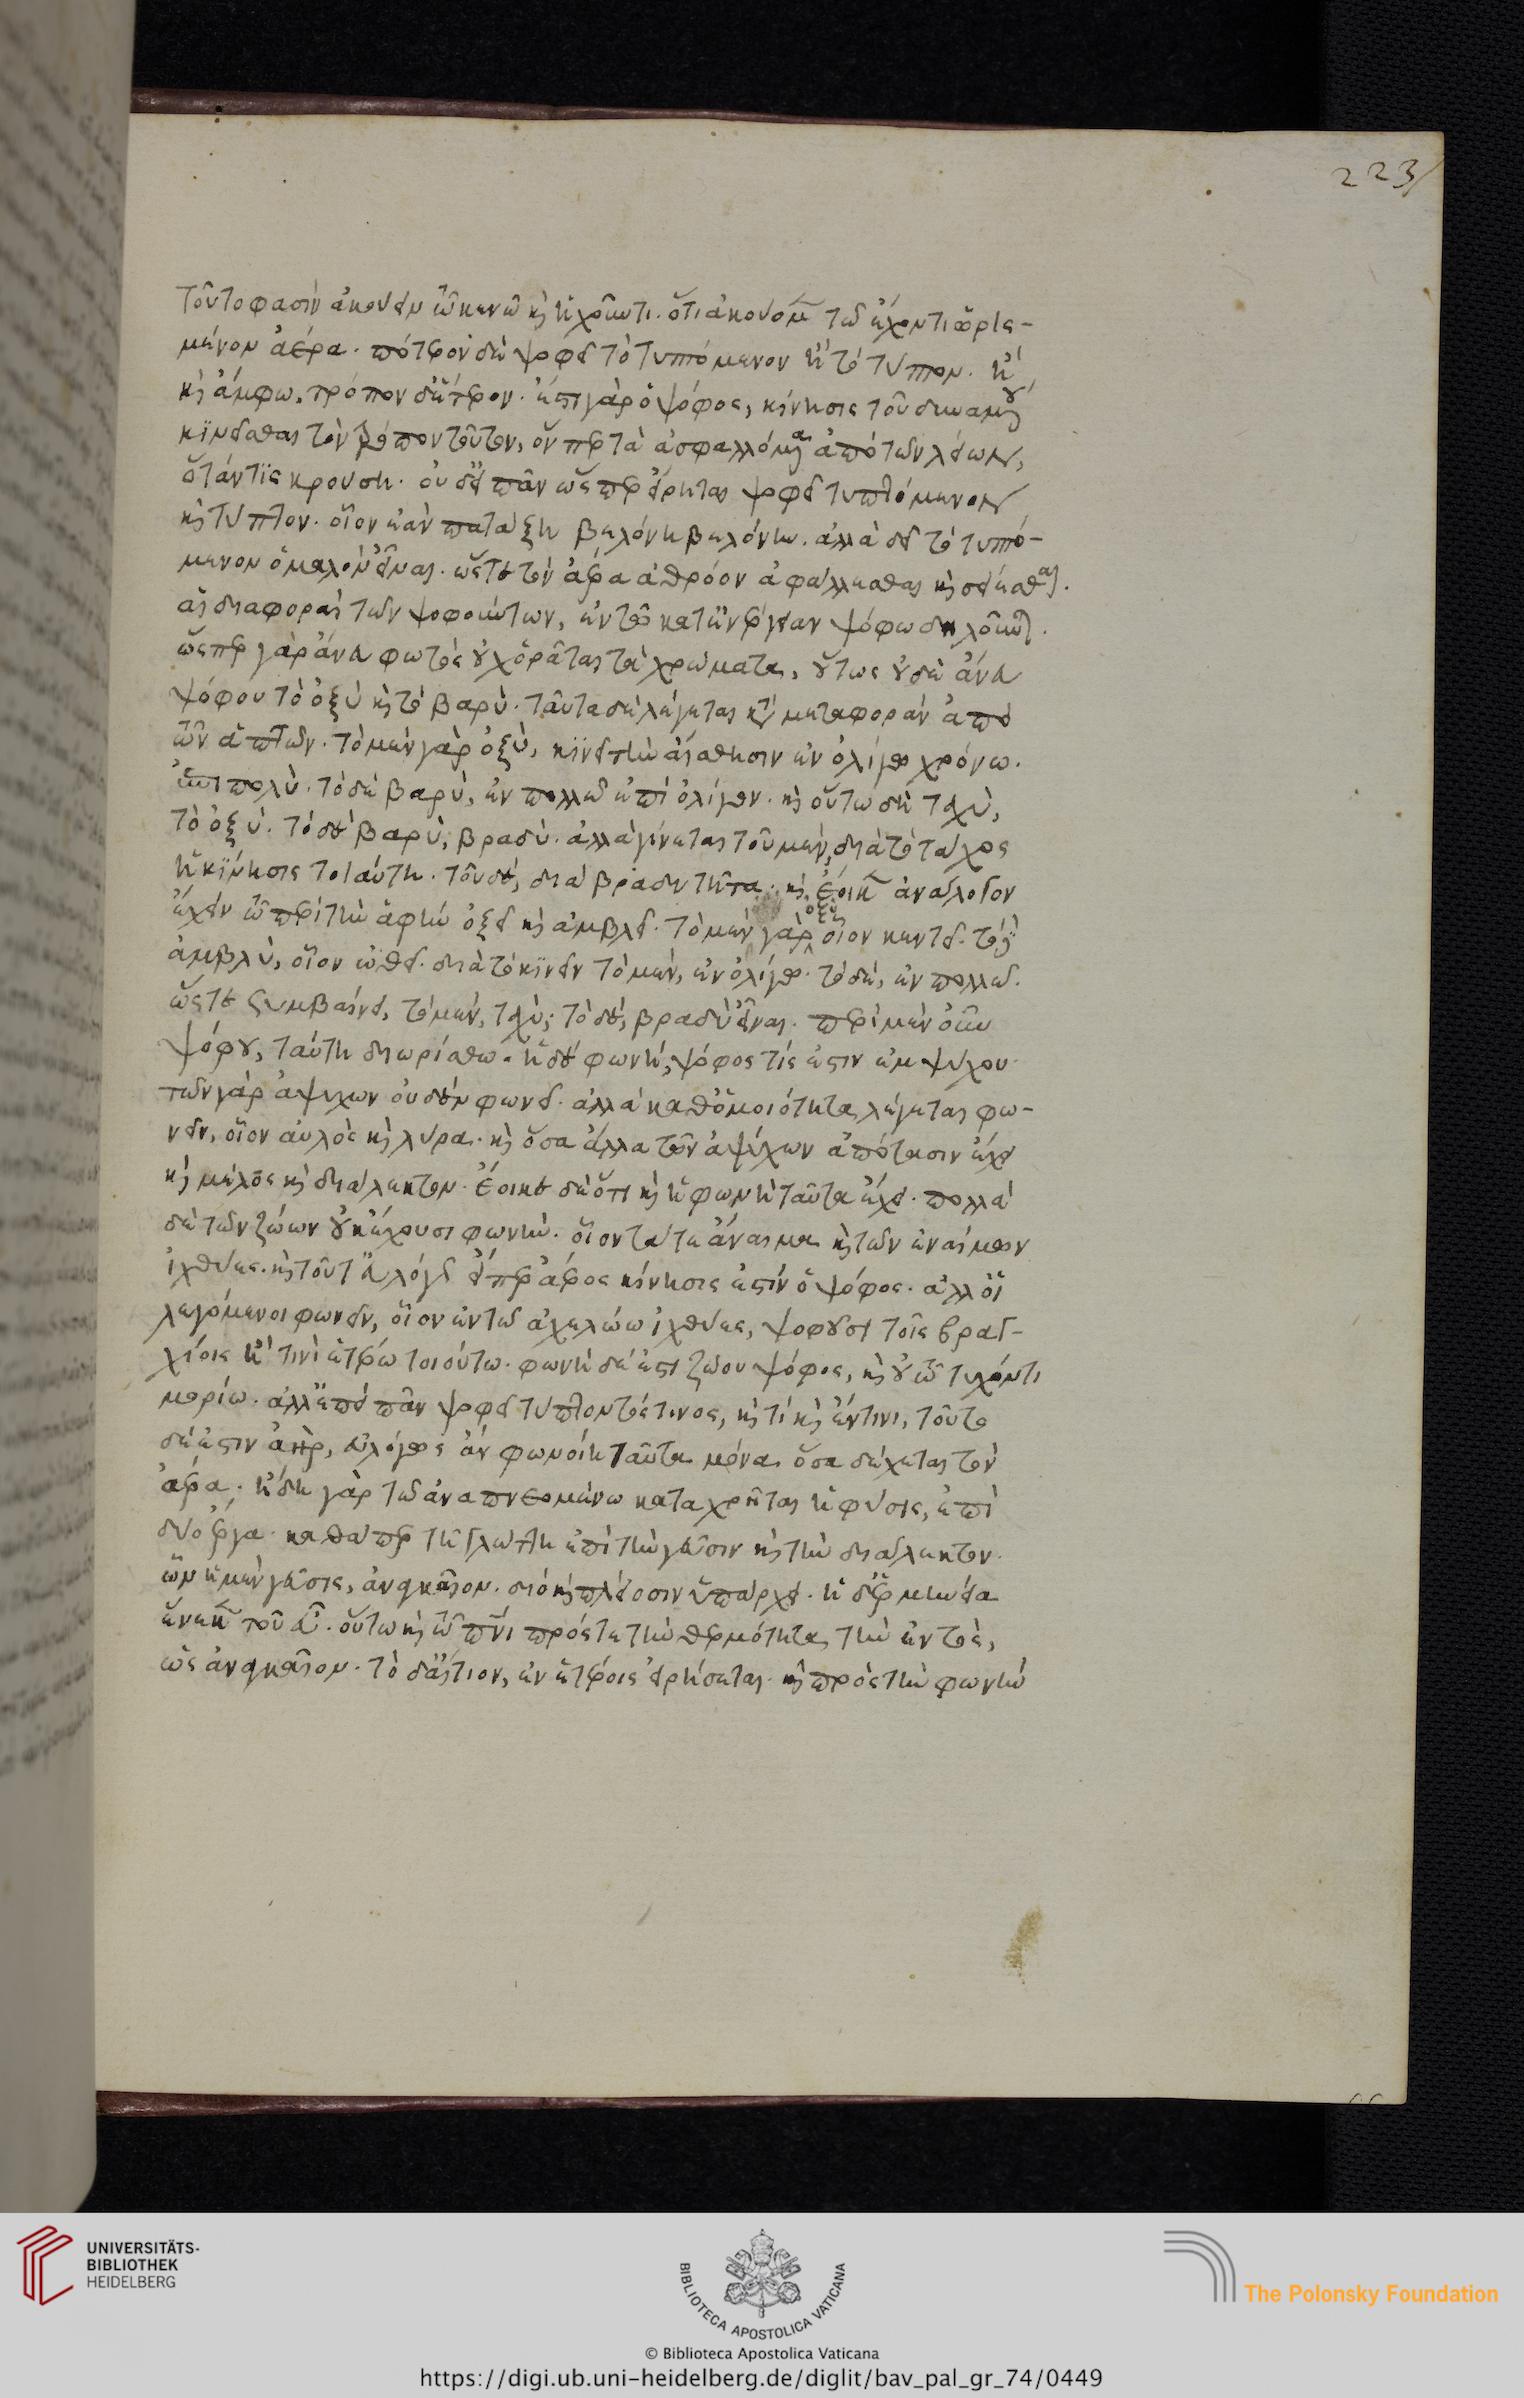 τοῦτο φασὶν ἀκούειν τῷ κενῷ καὶ ἠχοῦντι. ὅτι ἀκούομεν τῷ ἔχοντι ὡρισ-
μένον ἀέρα. πότερον δὲ ψοφεῖ τὸ τυπτόμενον ἢ τὸ τύπτον. ἢ
καὶ ἄμφω, τρόπον δ' ἕτερον. ἔστι γὰρ ὁ ψόφος, κίνησις τοῦ δυναμένου
κινεῖσθαι τὸν τρόπον τοῦτον, ὅν περ τὰ ἀσφαλλόμενα ἀπὸ τῶν λείων,
ὅτάν τις κρούση. οὐ δὴ πᾶν ὥσπερ εἴρηται ψοφεῖ τυπτόμενον
καὶ τύπτον. οἷον ἐὰν πατάξη βελόνη βελόνην. ἀλλὰ δεῖ τὸ τυπτό-
μενον ὁμαλὸν εἶναι. ὥστε τὸν ἀέρα ἀθρόον ἀφάλλεσθαι καὶ σείεσθαι.
αἱ διαφοραὶ τῶν ψοφούντων, ἐν τῷ κατ' ἐνέργειαν ψόφω δηλοῦνται.
ὥσπερ γὰρ ἄνευ φωτὸς οὐχ ὁρᾶται τὰ χρώματα, οὕτως οὐδὲ ἄνευ
ψόφου τὸ ὀξὺ καὶ τὸ βαρύ. ταῦτα δὲ λέγεται κατὰ μεταφορὰν ἀπὸ
τῶν ἁπτῶν. τὸ μὲν γὰρ ὀξὺ, κινεῖ τὴν αἴσθησιν ἐν ὀλίγω χρόνω.
ἐπὶ πολύ. τὸ δὲ βαρὺ, ἐν πολλῷ ἐπὶ ὀλίγον. καὶ οὔτω δὴ ταχὺ,
τὸ ὀξύ. τὸ δὲ βαρὺ, βραδύ. ἀλλὰ γίνεται τοῦ μὲν, διὰ τὸ τάχος
ἡ κίνησις τοιαύτη. τοῦ δὲ, διὰ βραδυτῆτα. καὶ ἔοικεν ἀνάλογον
ἔχειν τῷ περὶ τὴν ἁφὴν ὀξεῖ καὶ ἀμβλεῖ. τὸ μὲν γὰρ ὀξὺ οἷον κεντεῖ. τὸ δὲ
ἀμβλὺ, οἷον ὠθεῖ. διὰ τὸ κινεῖν τὸ μὲν, ἐν ὀλίγω. τὸ δὲ, ἐν πολλῷ.
ὥστε συμβαίνει, τὸ μὲν, ταχὺ, τὸ δὲ, βραδὺ εἶναι. περὶ μὲν οὖν
ψόφου, ταύτη διωρίσθω. ἡ δὲ φωνὴ, ψόφος τίς ἐστιν ἐμψύχου.
τῶν γὰρ ἀψύχων οὐδὲν φωνεῖ. ἀλλὰ καθ' ὁμοιότητα λέγεται φω-
νεῖν, οἷον αὐλὸς καὶ λύρα. καὶ ὅσα ἄλλα τῶν ἀψύχων ἀπότασιν ἔχει
καὶ μέλος καὶ διάλεκτον. ἔοικε δὲ ὅτι καὶ ἡ φωνὴ ταῦτα ἔχει. πολλὰ
δὲ τῶν ζώων οὐκ ἔχουσι φωνήν. οἷον τά τε ἄναιμα καὶ τῶν ἐναίμων
ἰχθύες. καὶ τοῦτ' εὐλόγως εἴπερ ἀέρος κίνησις ἐστὶν ὁ ψόφος. ἀλλ' οἱ
λεγόμενοι φωνεῖν, οἷον ἐν τῷ ἀχελώω ἰχθύες, ψοφοῦσι τοῖς βραγ-
χίοις ἤ τινι ἑτέρω τοιούτω. φωνὴ δέ ἐστι ζώου ψόφος, καὶ οὐ τῷ τυχόντι
μορίω. ἀλλ' ἐπεὶ πᾶν ψοφεῖ τύπτοντός τινος, καὶ τὶ καὶ ἔν τινι, τοῦτο
δέ ἐστιν ἀὴρ, εὐλόγως ἂν φωνοίη ταῦτα μόνα ὅσα δέχεται τὸν
ἀέρα. ἤδη γὰρ τῷ ἀναπνεομένω καταχρῆται ἡ φύσις, ἐπὶ
δύο ἔργα. καθάπερ τῆ γλώττη ἐπὶ τὴν γεῦσιν καὶ τὴν διάλεκτον.
ὧν ἡ μὲν γεῦσις, ἀναγκαῖον. διὸ καὶ πλείοσιν ὑπάρχει. ἡ δ' ἑρμηνεία
ἕνεκεν τοῦ εὖ. οὕτω καὶ τῷ πνεύματι πρός τε τὴν θερμότητα τὴν ἐντὸς,
ὡς ἀναγκαῖον. τὸ δ' αἴτιον, ἐν ἑτέροις εἰρήσεται. καὶ πρὸς τὴν φωνὴν
223
UNIVERSITÄTS-
BIBLIOTHEK
HEIDELBERG
BIBLIOTECA APOSTOLICA VATICANA
The Polonsky Foundation
© Biblioteca Apostolica Vaticana
https://digi.ub.uni-heidelberg.de/diglit/bav_pal_gr_74/0449